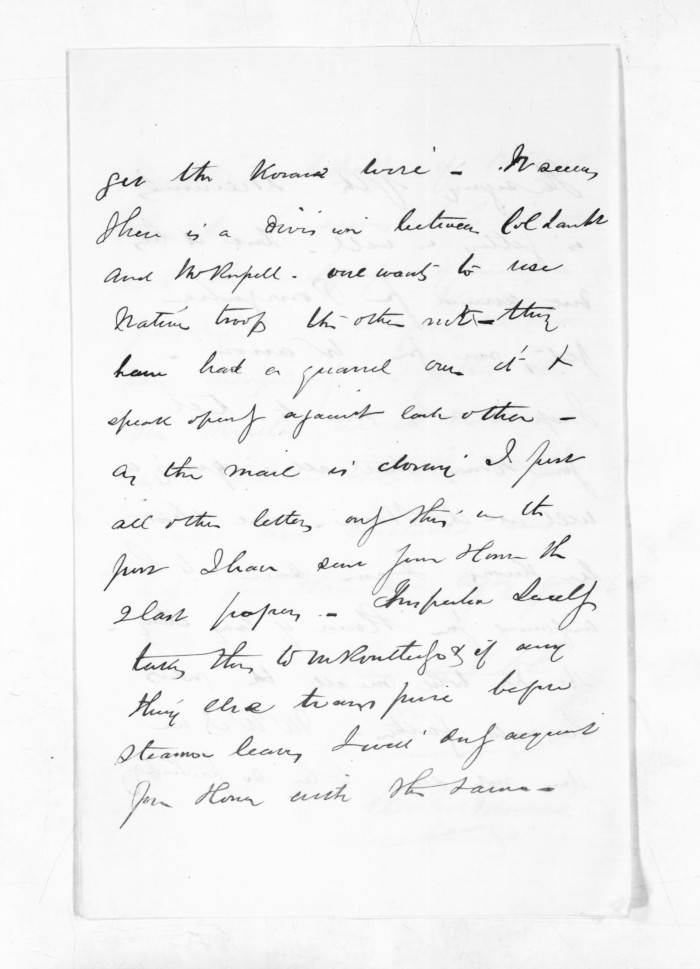 get the Korana wire - It seems
there is a division between Col Lambt
and Mr Russell - one wants to use
Native troops the other not - they
have had a quarrel over it &
speak openly against each other -
as the mail is closing I put
all other letters only this in the
post I have sent your Honor the
2 last papers - Inspector Scully
takes this to Mr Routledge & if any
thing else transpire before
steamer leaves I will only acquaint
Your Honor with the same -